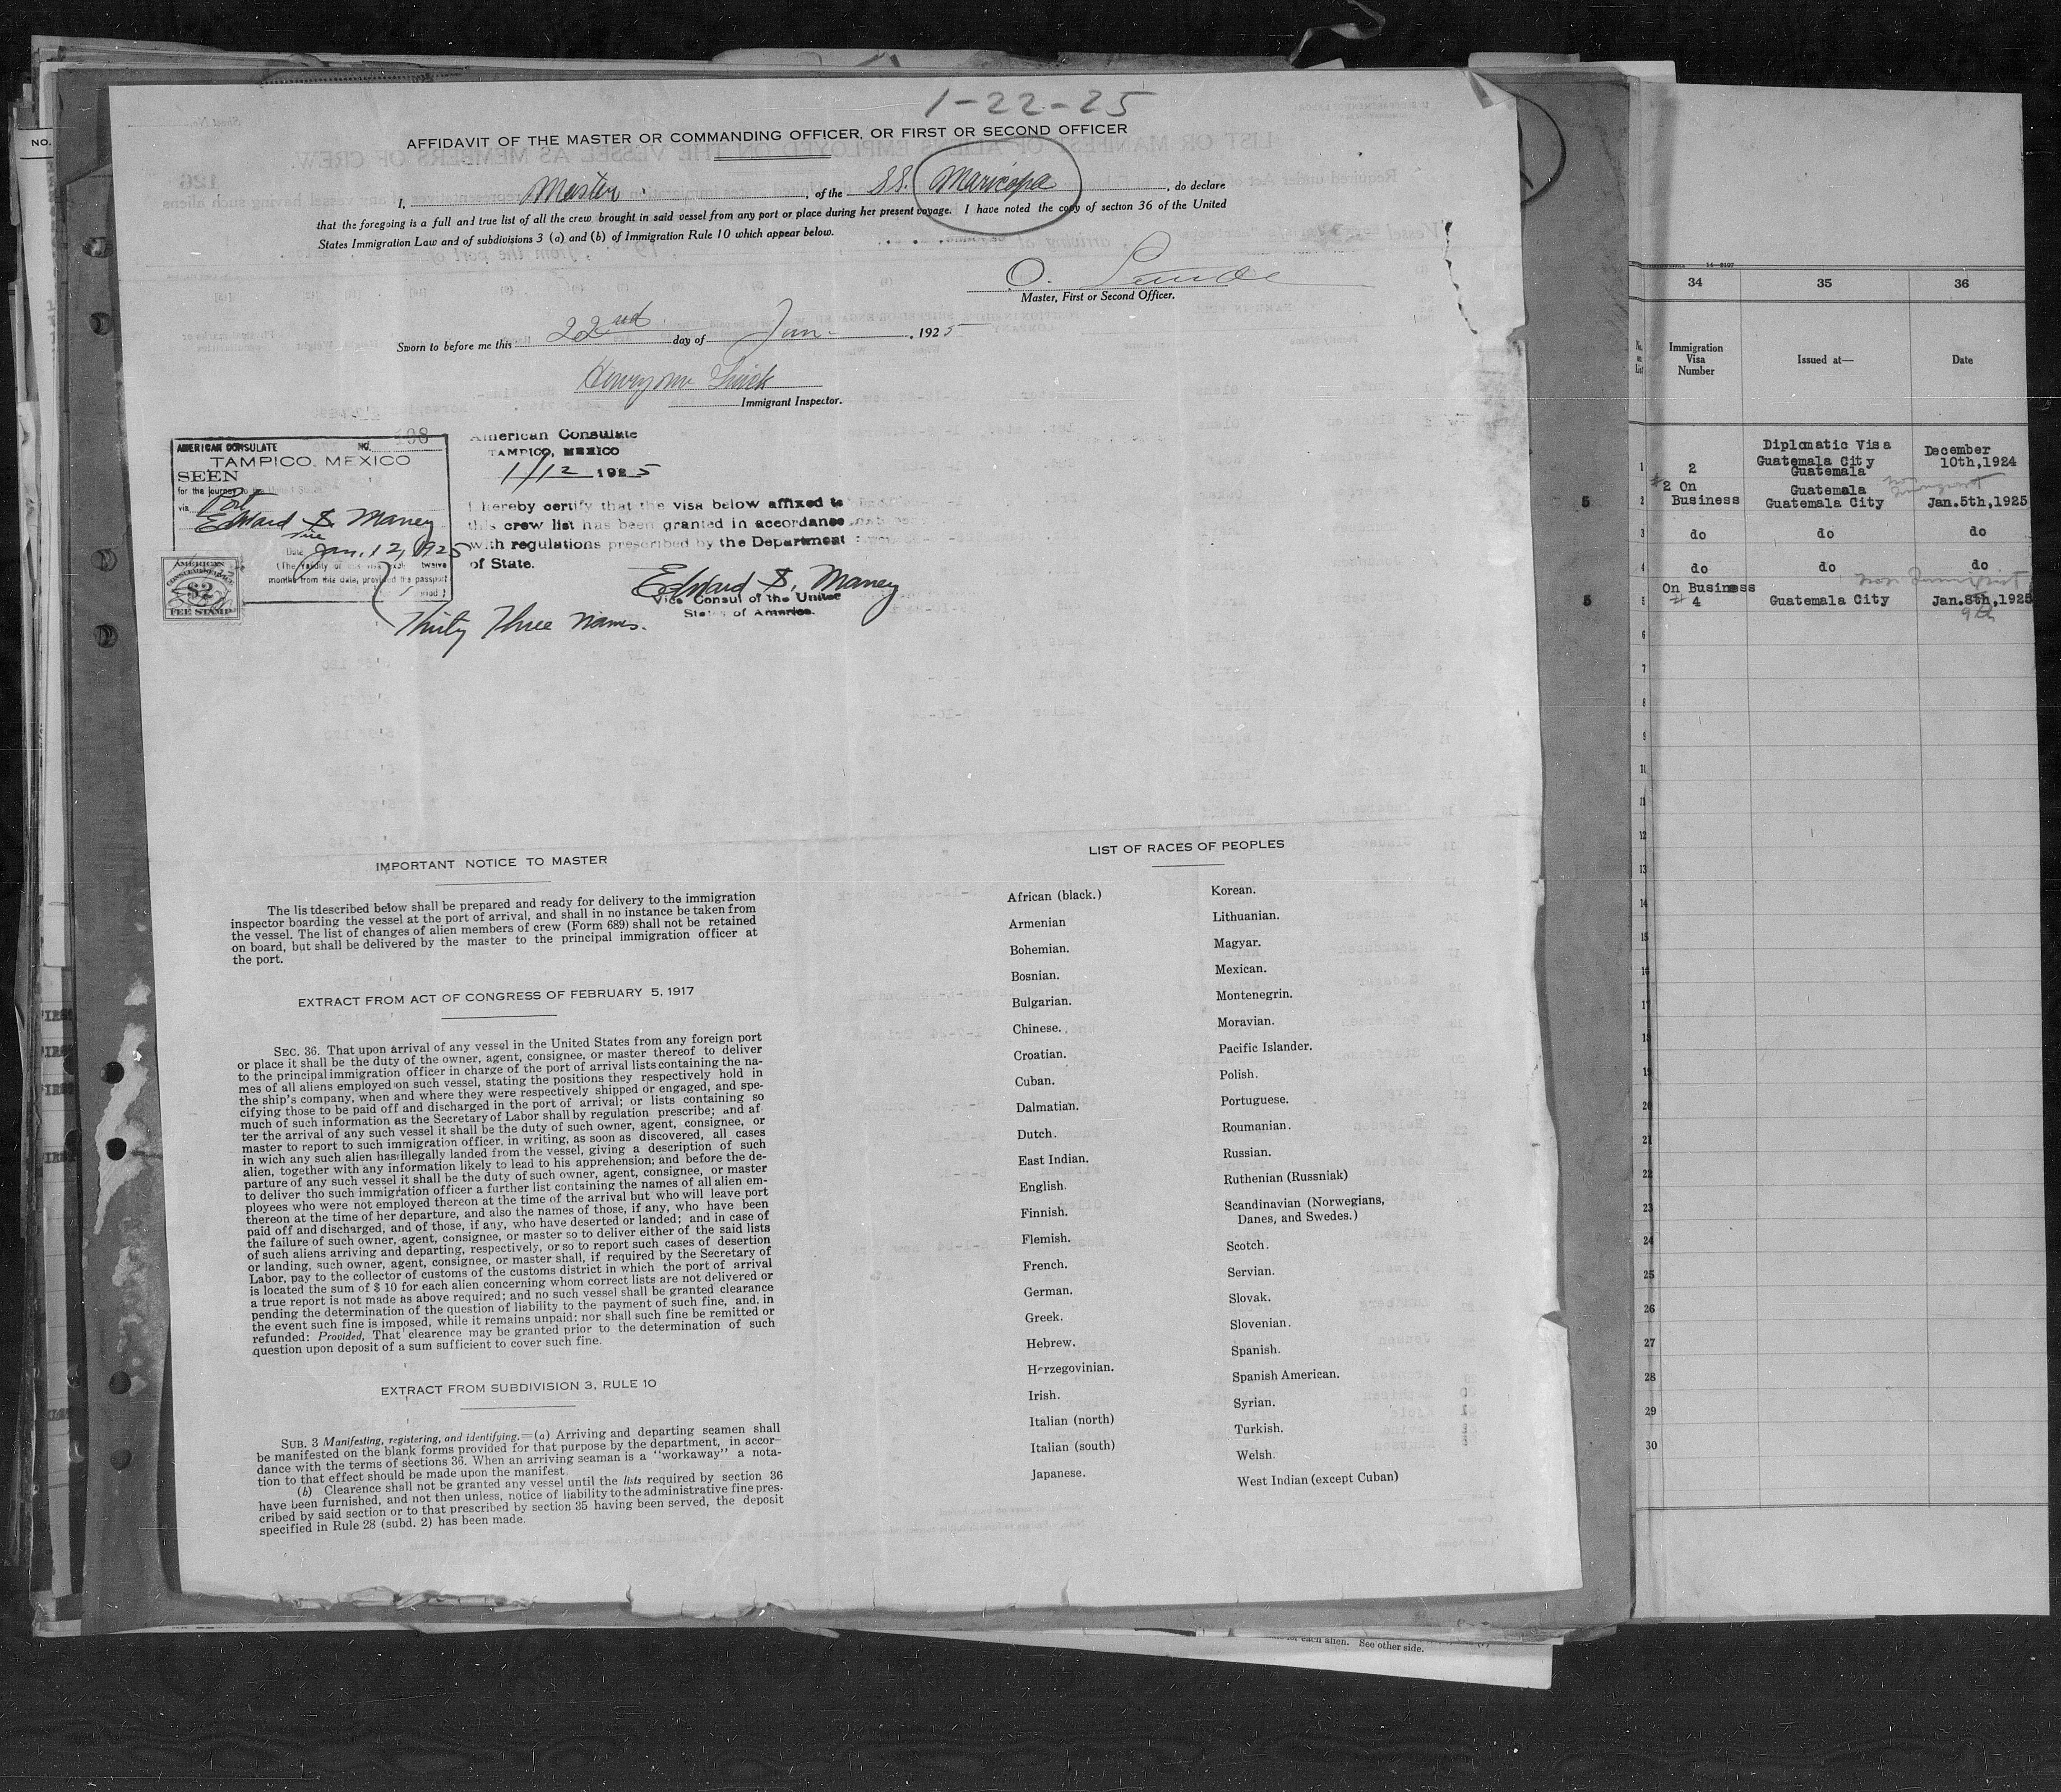 1-22-25
AFFIDAVIT OF THE MASTER OR COMMANDING OFFICER, OR FIRST OR SECOND OFFICER
I, Master, of the SS. Maricopa, do declare
that the foregoing is a full and true list of all the crew brought in said vessel from any port or place during her present voyage. I have noted the copy of section 36 of the United
States Immigration Law and of subdivisions 3 (a) and (b) of Immigration Rule 10 which appear below.
Master, First or Second Officer.
Sworn to before me this 22nd day of Jan., 1925
Immigrant Inspector.
AMERICAN CONSULATE NO. 108
TAMPICO, MEXICO
SEEN
for the journey to the United States
via
Edward S. Maney
Date Jan. 12, 1925
months from this date, provided the passport
AMERICAN
$2
FEE STAMP
American Consulate
TAMPICO, MEXICO
1/12 1925
I hereby certify that the visa below affixed to
this crew list has been granted in accordance
with regulations prescribed by the Department
of State.
Edward S. Maney
Vice Consul of the United
States of America.
Thirty Three names.
IMPORTANT NOTICE TO MASTER
The lis tdescribed below shall be prepared and ready for delivery to the immigration
inspector boarding the vessel at the port of arrival, and shall in no instance be taken from
the vessel. The list of changes of alien members of crew (Form 689) shall not be retained
on board, but shall be delivered by the master to the principal immigration officer at
the port.
EXTRACT FROM ACT OF CONGRESS OF FEBRUARY 5, 1917
SEC. 36. That upon arrival of any vessel in the United States from any foreign port
or place it shall be the duty of the owner, agent, consignee, or master thereof to deliver
to the principal immigration officer in charge of the port of arrival lists containing the na-
mes of all aliens employed on such vessel, stating the positions they respectively hold in
the ship's company, when and where they were respectively shipped or engaged, and spe-
cifying those to be paid off and discharged in the port of arrival; or lists containing so
much of such information as the Secretary of Labor shall by regulation prescribe; and af
ter the arrival of any such vessel it shall be the duty of such owner, agent, consignee, or
master to report to such immigration officer, in writing, as soon as discovered, all cases
in wich any such alien has illegally landed from the vessel, giving a description of such
alien, together with any information likely to lead to his apprehension; and before the de-
parture of any such vessel it shall be the duty of such owner, agent, consignee, or master
to deliver tho such immigration officer a further list containing the names of all alien em-
ployees who were not employed thereon at the time of the arrival but who will leave port
thereon at the time of her departure, and also the names of those, if any, who have been
paid off and discharged, and of those, if any, who have deserted or landed; and in case of
the failure of such owner, agent, consignee, or master so to deliver either of the said lists
of such aliens arriving and departing, respectively, or so to report such cases of desertion
or landing, such owner, agent, consignee, or master shall, if required by the Secretary of
Labor, pay to the collector of customs of the customs district in which the port of arrival
is located the sum of $ 10 for each alien concerning whom correct lists are not delivered or
a true report is not made as above required; and no such vessel shall be granted clearance
pending the determination of the question of liability to the payment of such fine, and, in
the event such fine is imposed, while it remains unpaid; nor shall such fine be remitted or
refunded: Provided, That clearence may be granted prior to the determination of such
question upon deposit of a sum sufficient to cover such fine.
EXTRACT FROM SUBDIVISION 3, RULE 10
SUB. 3 Manifesting, registering, and identifying.=(a) Arriving and departing seamen shall
be manifested on the blank forms provided for that purpose by the department, in accor-
dance with the terms of sections 36. When an arriving seaman is a "workaway" a nota-
tion to that effect should be made upon the manifest.
(b) Clearence shall not be granted any vessel until the lists required by section 36
have been furnished, and not then unless, notice of liability to the administrative fine pres-
cribed by said section or to that prescribed by section 35 having been served, the deposit
specified in Rule 28 (subd. 2) has been made.
LIST OF RACES OF PEOPLES
African (black.)
Armenian
Bohemian.
Bosnian.
Bulgarian.
Chinese.
Croatian.
Cuban.
Dalmatian.
Dutch.
East Indian.
English.
Finnish.
Flemish.
French.
German.
Greek.
Hebrew.
Herzegovinian.
Irish.
Italian (north)
Italian (south)
Japanese.
Korean.
Lithuanian.
Magyar.
Mexican.
Montenegrin.
Moravian.
Pacific Islander.
Polish.
Portuguese.
Roumanian.
Russian.
Ruthenian (Russniak)
Scandinavian (Norwegians,
Danes, and Swedes.)
Scotch.
Servian.
Slovak.
Slovenian.
Spanish.
Spanish American.
Syrian.
Turkish.
Welsh.
West Indian (except Cuban)
34 35 36
No. on List
Immigration Visa Number
Issued at—
Date
1 2 Diplomatic Visa Guatemala City Guatemala December 10th, 1924
5 2 #2 On Business Guatemala Guatemala City Jan. 5th, 1925
3 do do do
4 do do do
5 5 On Business # 4 Guatemala City Jan. 8th, 1925
9th
6
7
8
9
10
11
12
13
14
15
16
17
18
19
20
21
22
23
24
25
26
27
28
29
30
for each alien. See other side.
NO.